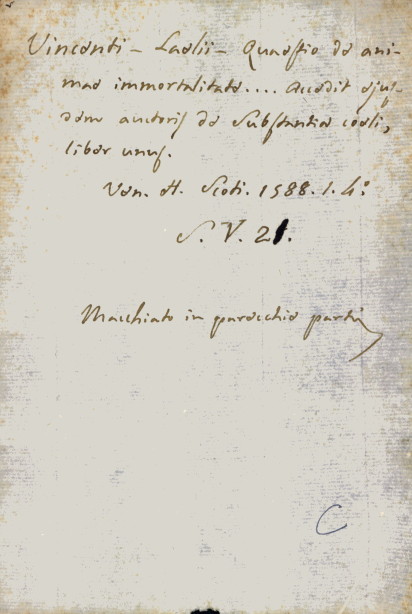 Vincenti - Laelii - Quaestio de ani-
mae immortalitate.... accedit ejus-
dem auctoris de Substantia coeli,
liber unus.
Ven. H. Scoti. 1588. 1. 4.°
S. V. 21.
Macchiato in parecchie parti
C